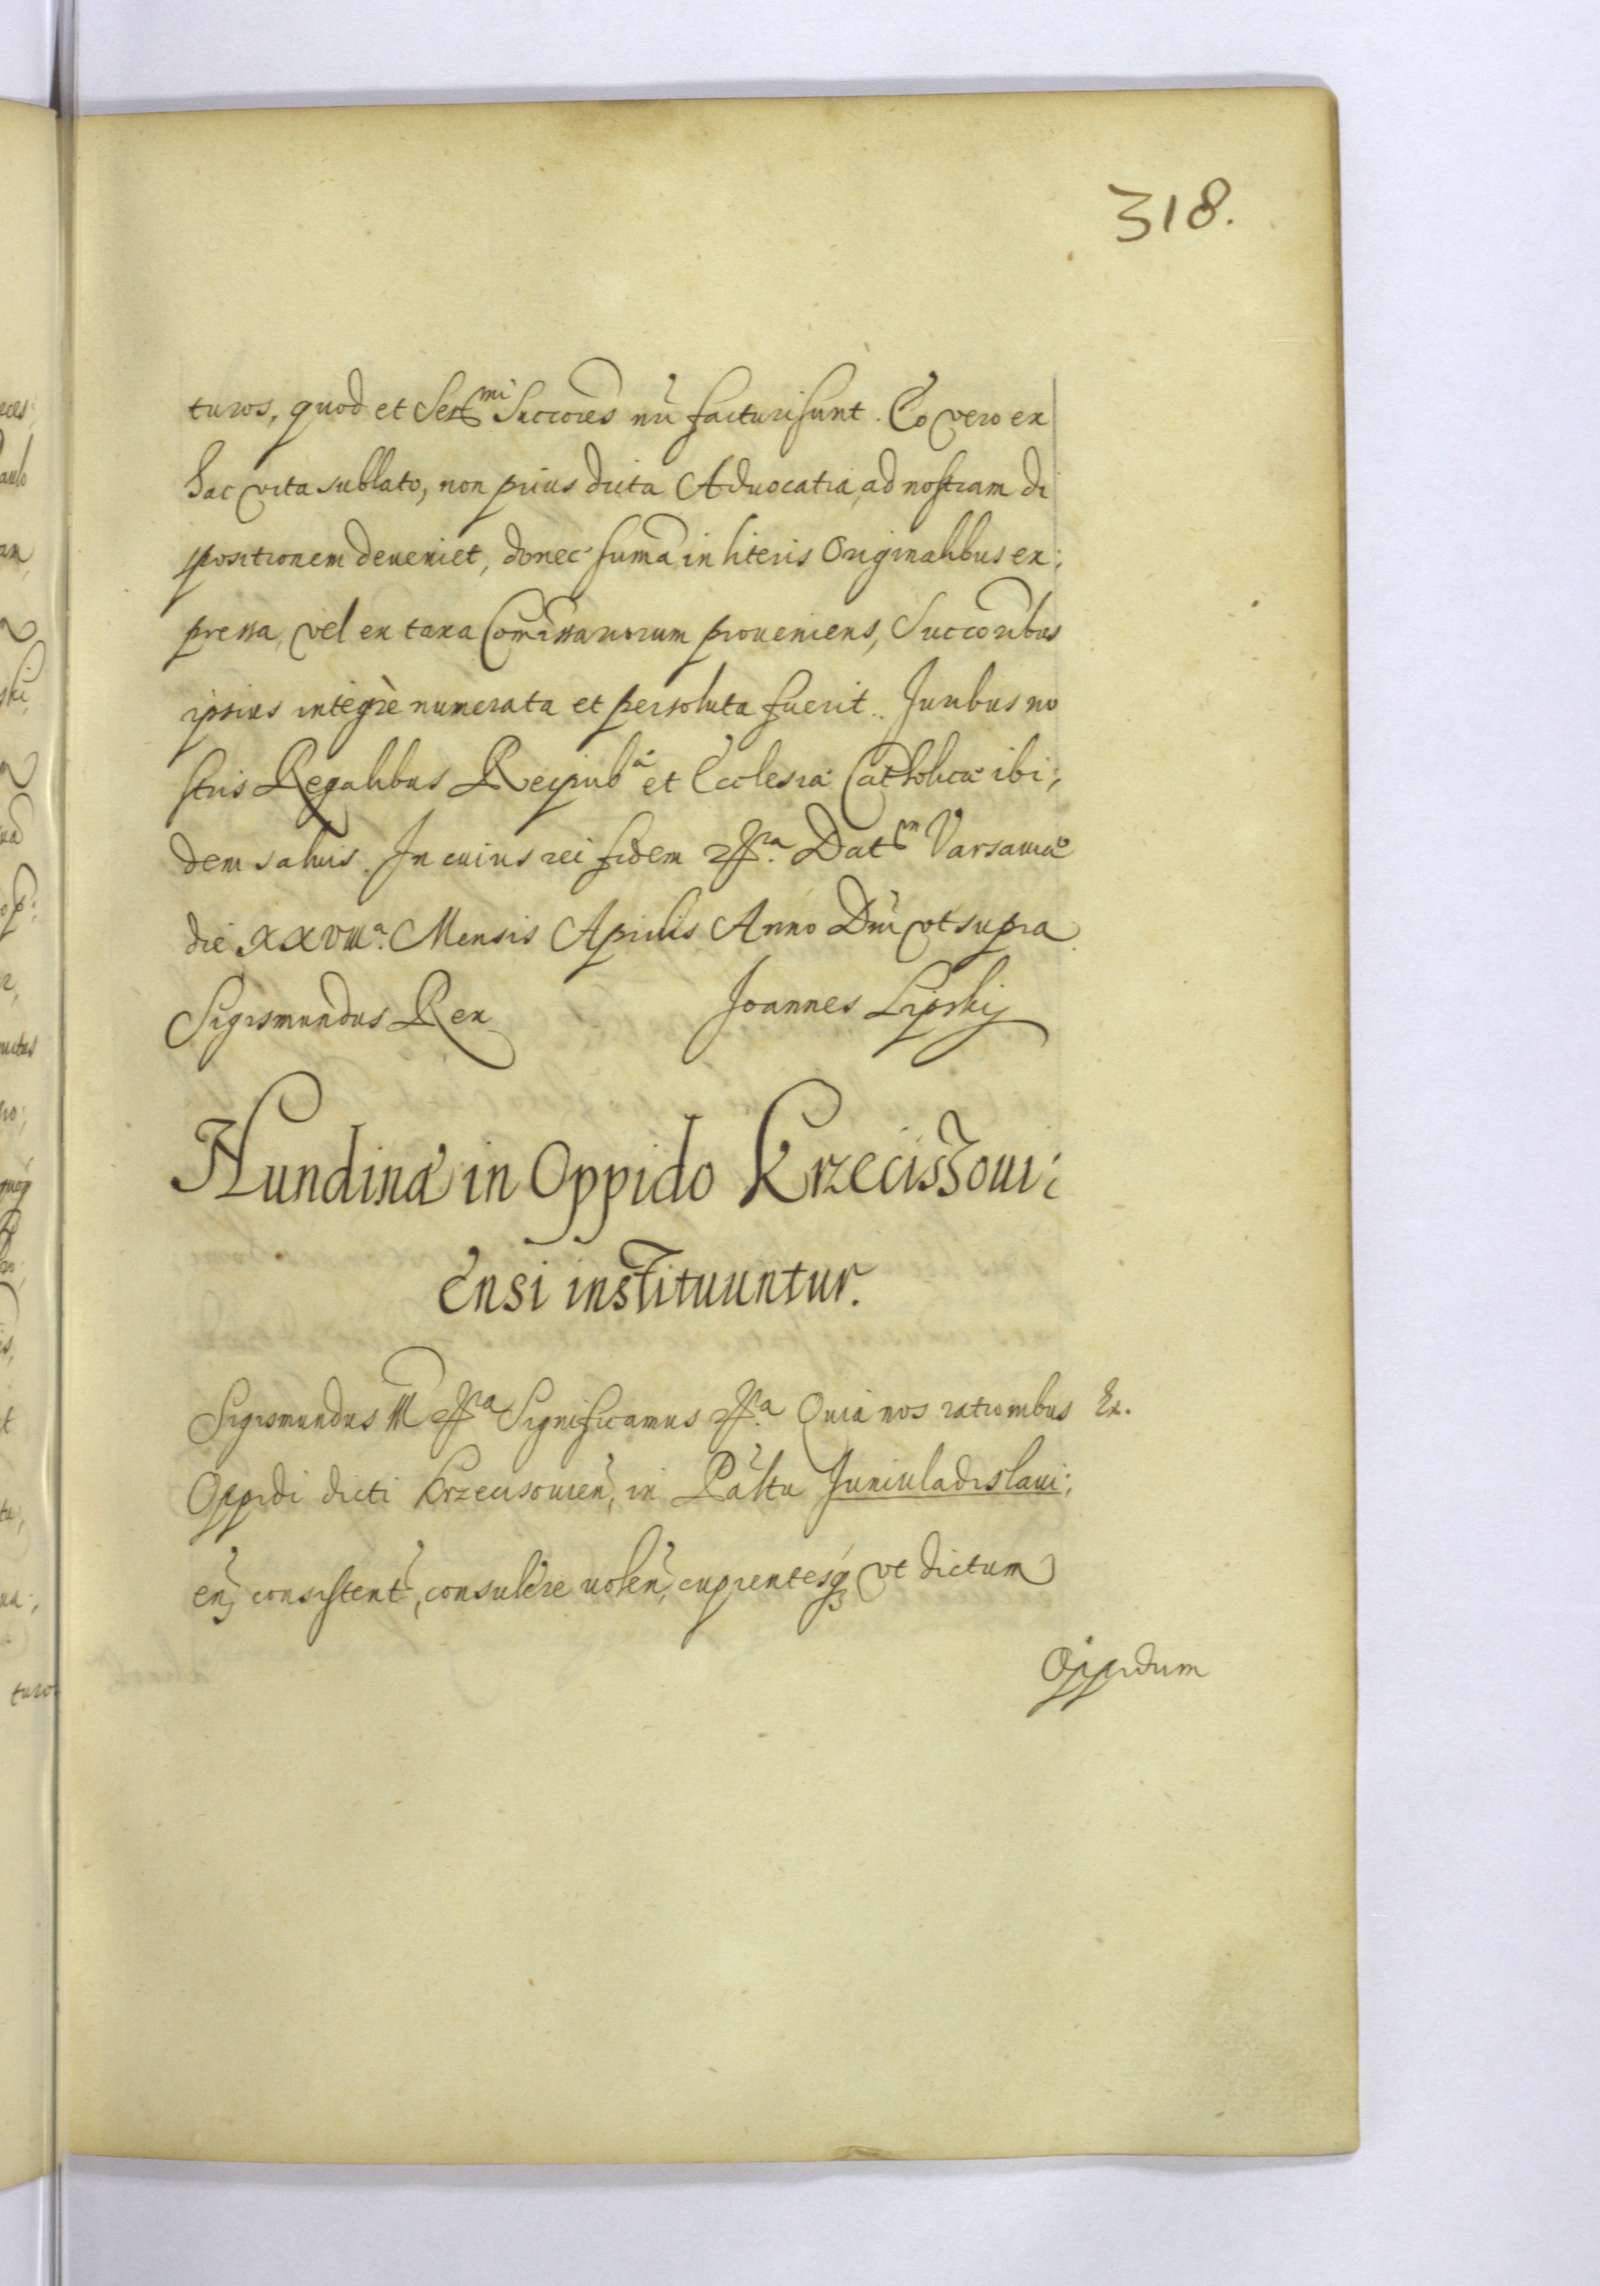 318.
turos, quod et Ser<sup>mi</sup> Succores nri facturi sunt. Eo vero ex
hac vita sublato, non prius dicta Advocatia, ad nostram di
spositionem deveniet, donec suma in literis Originalibus ex;
pressa, vel ex taxa Comissariorum proveniens, Succoribus
ipsius integrè numerata et persoluta fuerit. Juribus no
stris Regalibus Reipub<sup>ca</sup> et Ecclesiæ Catholicæ ibi;
dem salvis. In cuius rei fidem etc<sup>ra</sup>. Dat<sup>m</sup> Varsaviæ
die XXVIII<sup>a</sup>. Mensis Aprilis Anno Dni vt supra
Sigismundus Rex Joannes Lipskj
Nundinæ in Oppido Krzecissoui;
ensi instituuntur.
Sigismundus III etc<sup>ra</sup> Significamus etc<sup>ra</sup>. Quia nos rationibus Ex.
Oppidi dicti Krzecisouien, in Paltu Juniuladislaui;
en, consistent, consulere uolen, cupientesq₃ vt dictum
Oppidum